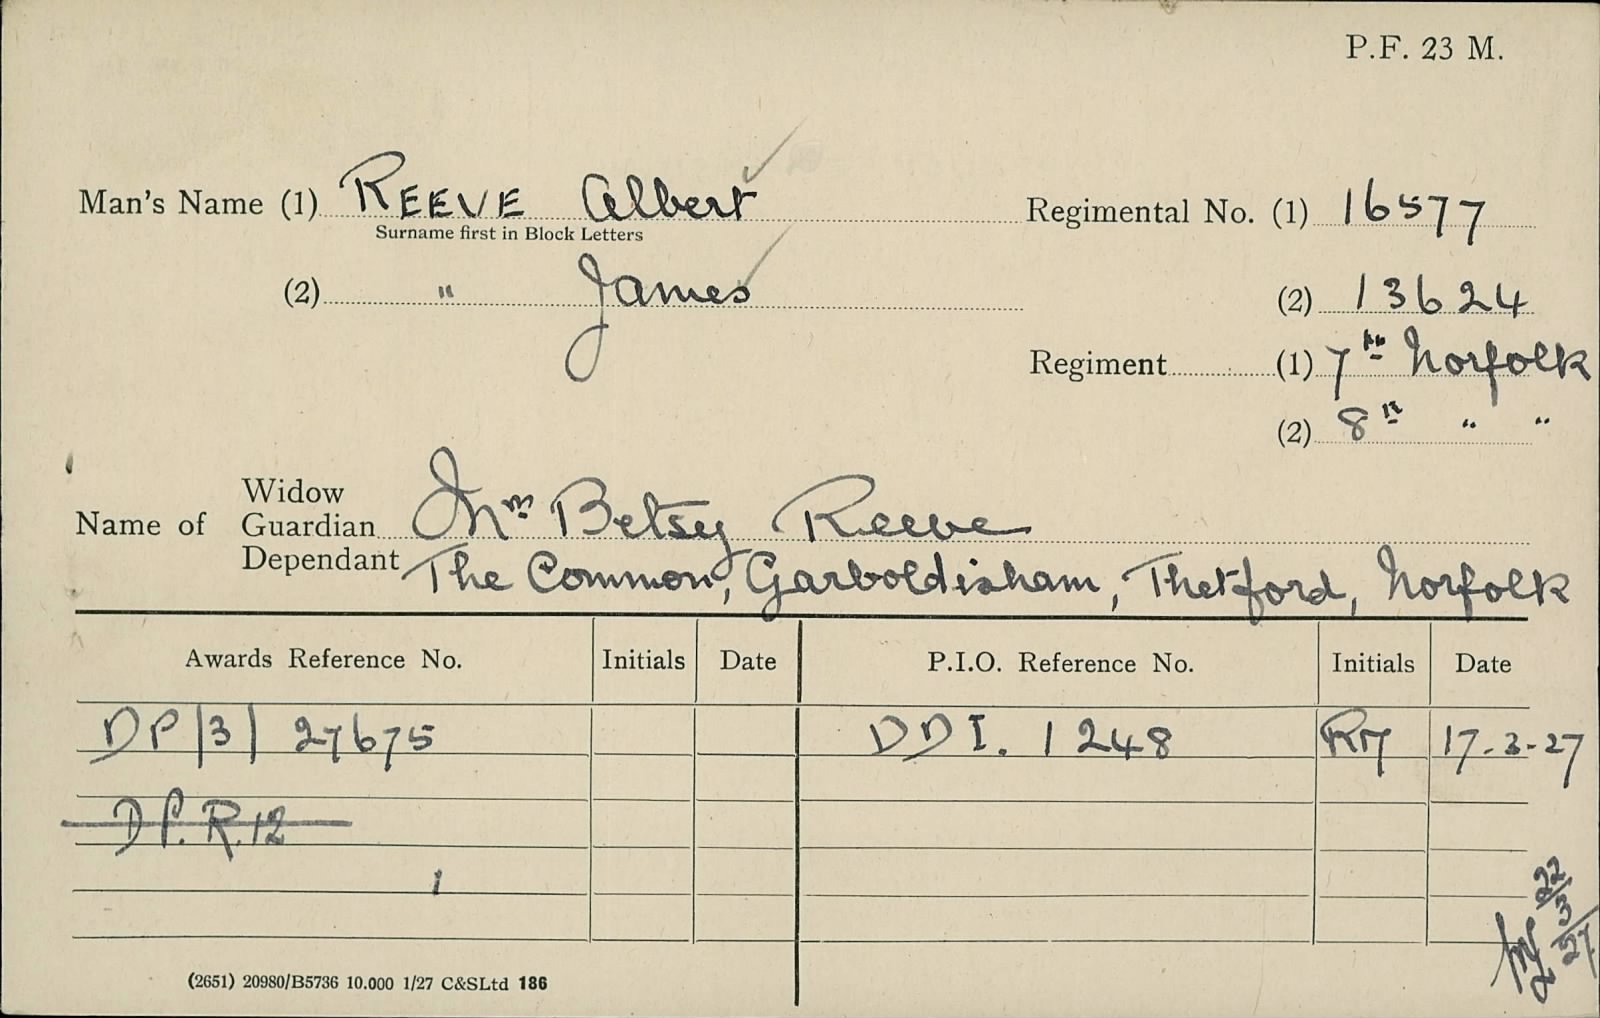 P.F. 23 M.
Man's Name (1) REEVE Albert Regimental No. (1) 16577
Surname first in Block Letters
(2) " James (2) 13624
Regiment (1) 7th Norfolk
(2) 8th " "
Name of Widow Guardian Dependant Mrs Betsy Reeve
The Common, Garboldisham, Thetford, Norfolk
Awards Reference No. Initials Date P.I.O. Reference No. Initials Date
DP/3/ 27675 DDI. 1248 RM 17-3-27
DP. R.12
22/3/27
(2651) 20980/B5736 10.000 1/27 C&SLtd 186